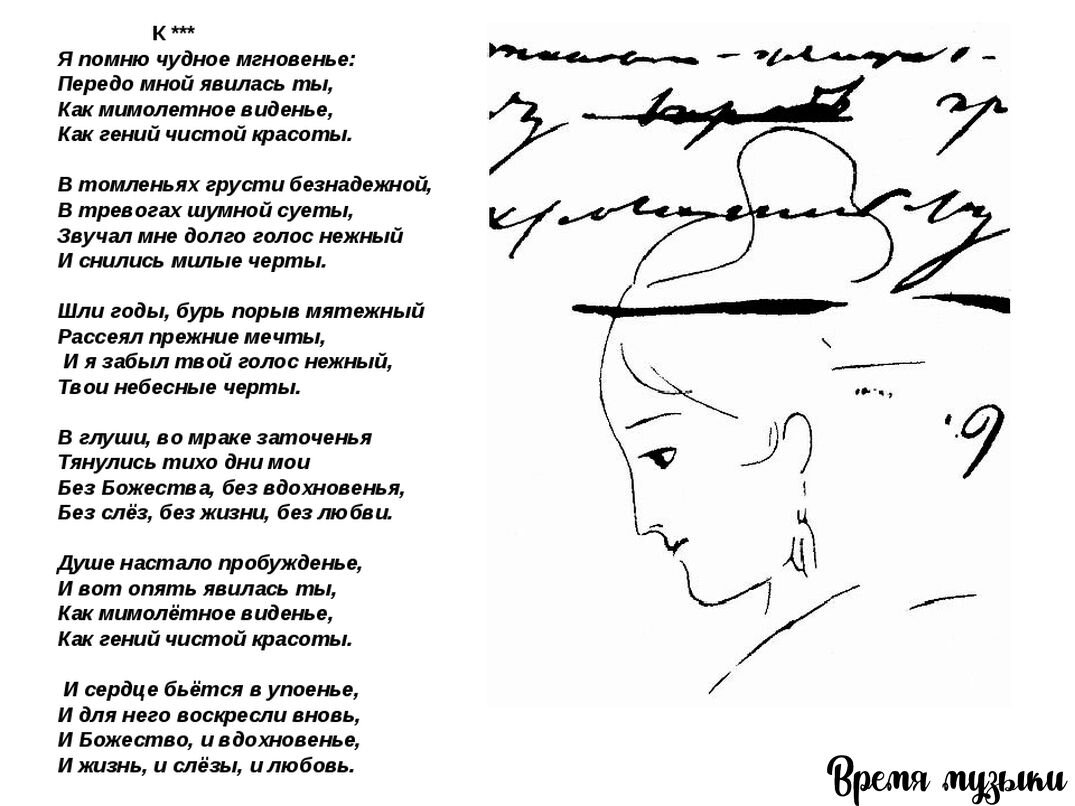 К ***
Я помню чудное мгновенье:
Передо мной явилась ты,
Как мимолетное виденье,
Как гений чистой красоты.
В томленьях грусти безнадежной,
В тревогах шумной суеты,
Звучал мне долго голос нежный
И снились милые черты.
Шли годы, бурь порыв мятежный
Рассеял прежние мечты,
И я забыл твой голос нежный,
Твои небесные черты.
В глуши, во мраке заточенья
Тянулись тихо дни мои
Без Божества, без вдохновенья,
Без слёз, без жизни, без любви.
Душе настало пробужденье,
И вот опять явилась ты,
Как мимолётное виденье,
Как гений чистой красоты.
И сердце бьётся в упоенье,
И для него воскресли вновь,
И Божество, и вдохновенье,
И жизнь, и слёзы, и любовь.
Время музыки